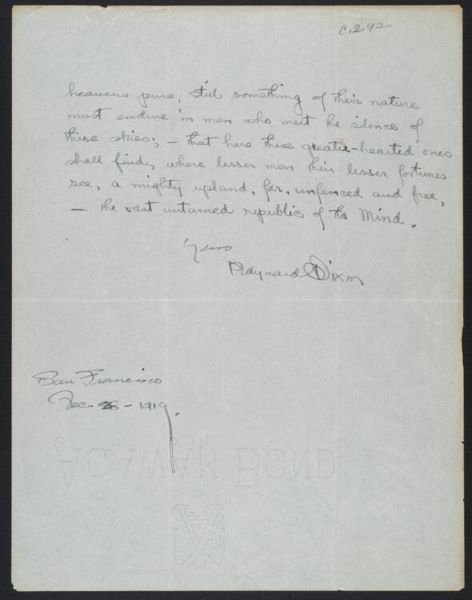 C.2.42
heavens pure, still something of their nature
must endure in men who meet the silence of
these skies; – that here these greater-hearted ones
shall find, where lesser men their lesser fortunes
see, a mighty upland, far, unfenced and free,
– the vast untamed republic of the Mind.
Yours
Maynard Dixon
San Francisco
Dec. – 1919.
AGAWAM BOND